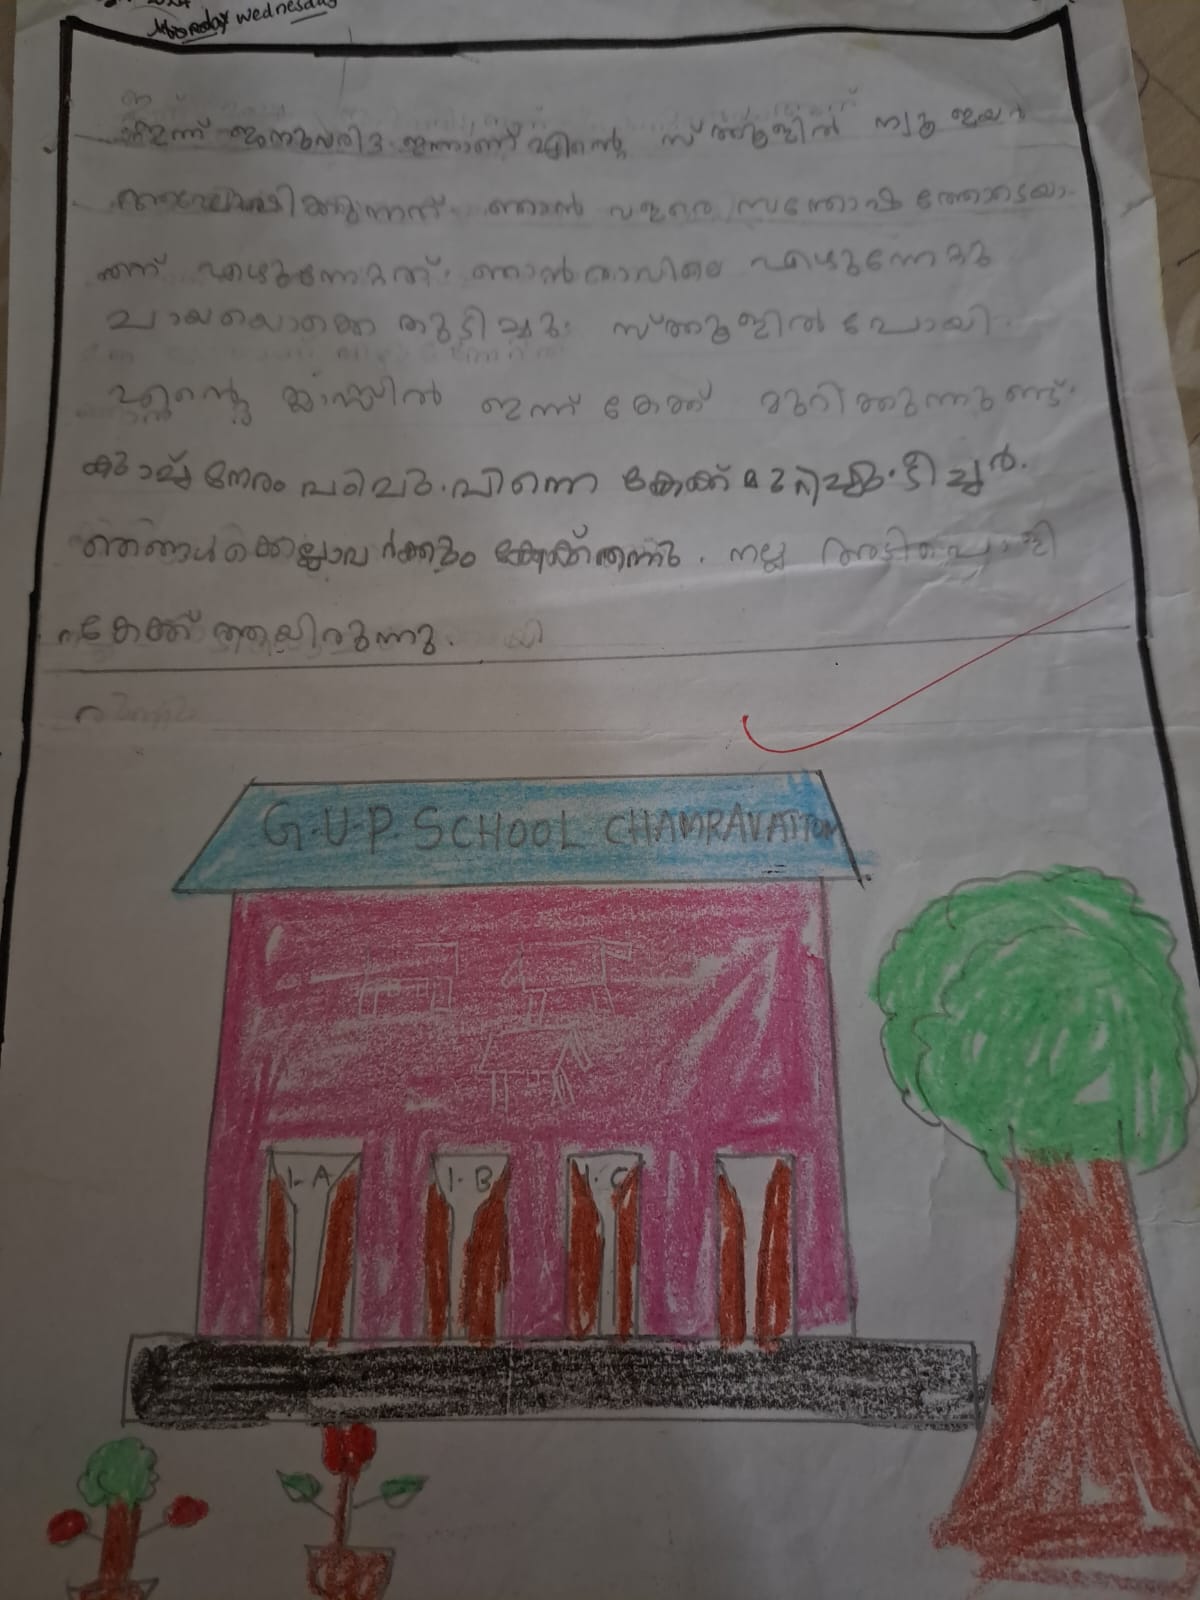 Monday wednesday
ഇന്ന് ജനുവരി 3 ഇന്നാണ് എന്റെ സ്ക്കൂളിൽ ന്യൂ ഇയർ
ആഘോഷിക്കുന്നത്. ഞാൻ വളരെ സന്തോഷത്തോടെയാ
ണ് എഴുന്നേറ്റത്. ഞാൻ രാവിലെ എഴുന്നേറ്റു
ചായയൊക്കെ കുടിച്ചു. സ്ക്കൂളിൽ പോയി.
എന്റെ ക്ലാസ്സിൽ ഇന്ന് കേക്ക് മുറിക്കുന്നുണ്ട്.
കുറച്ച് നേരം പഠിച്ചു. പിന്നെ കേക്ക് മുറിച്ചു ടീച്ചർ.
ഞങ്ങൾക്കെല്ലാവർക്കും കേക്ക് തന്നു. നല്ല അടിപൊളി
കേക്ക് ആയിരുന്നു.
G.U.P. SCHOOL CHAMRAVATTOM
1-A 1-B 1-C